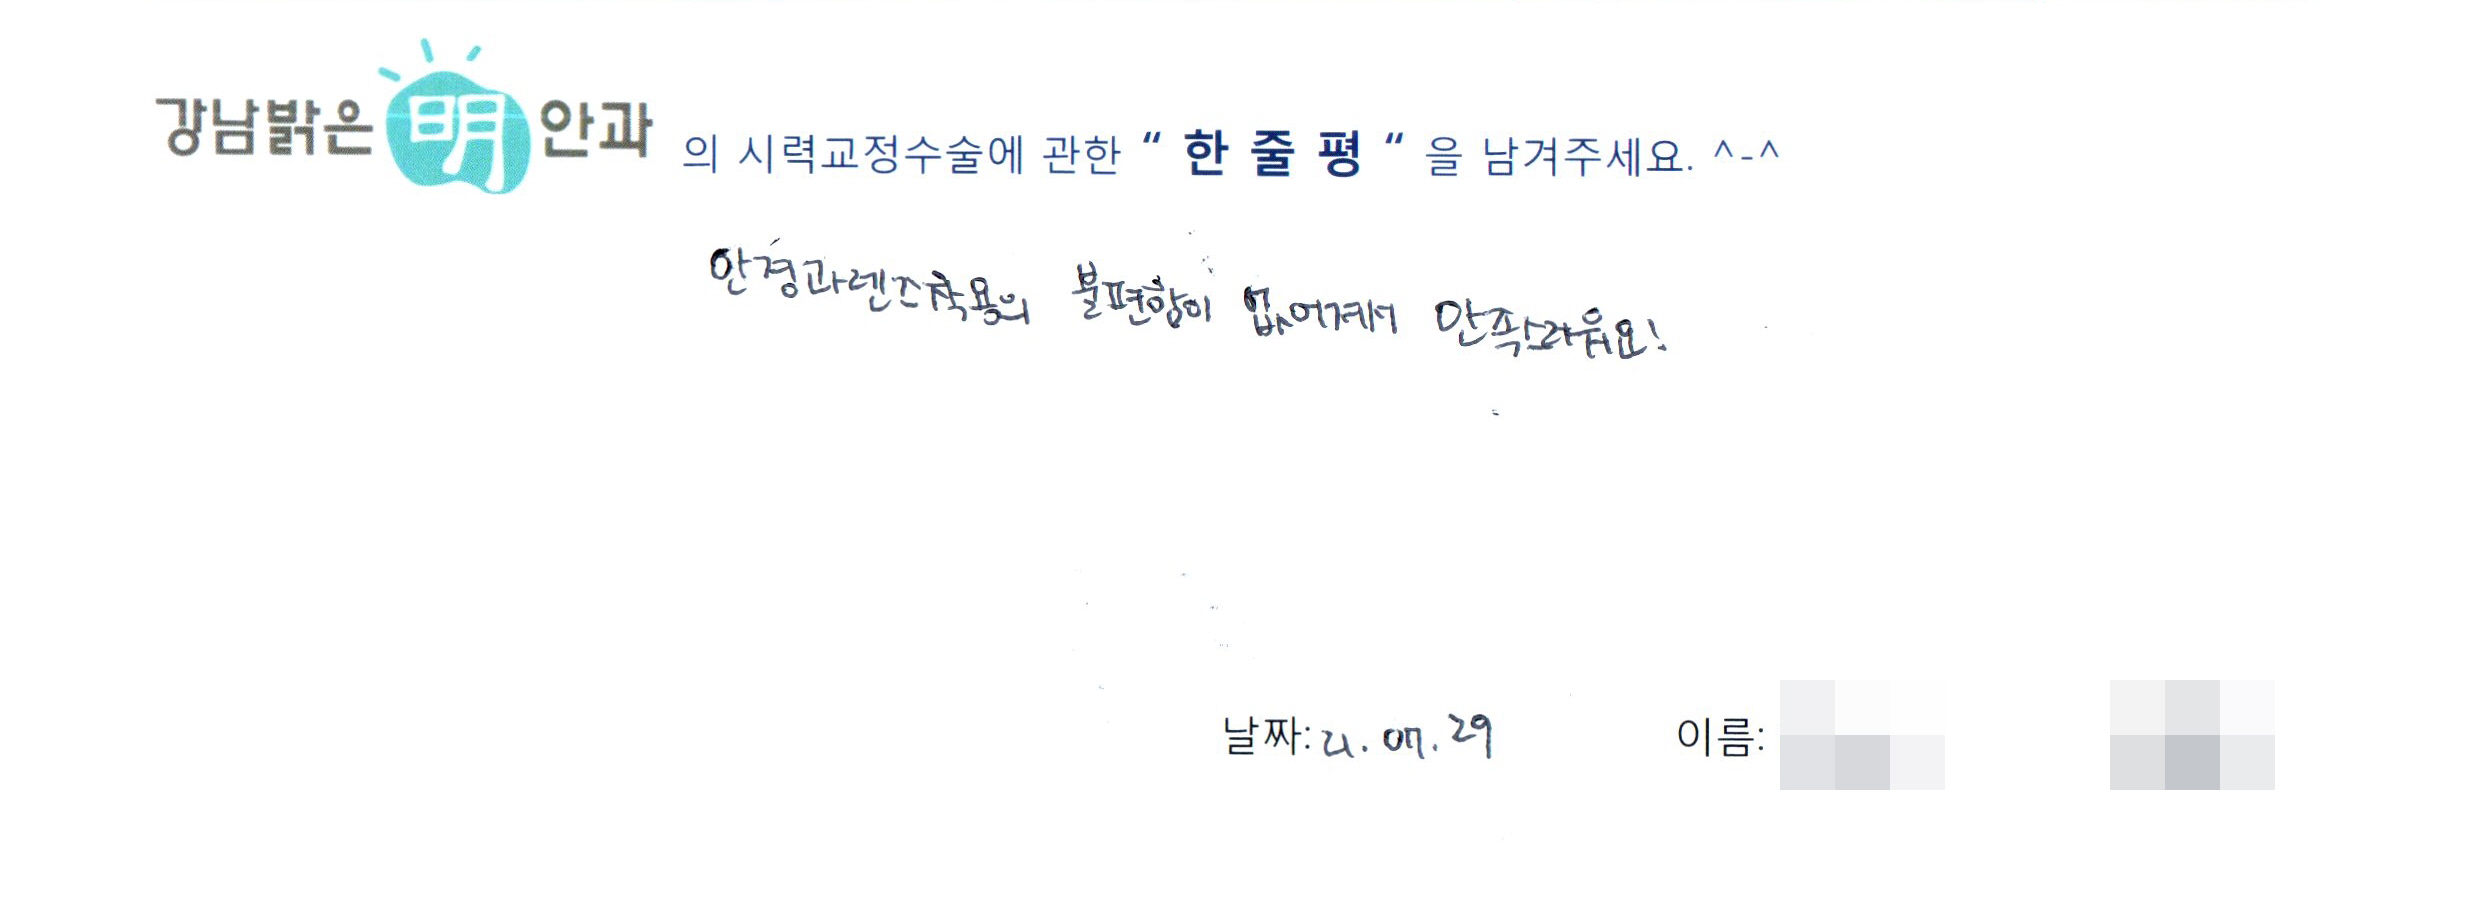 강남밝은明안과 의 시력교정수술에 관한 “ 한 줄 평 “ 을 남겨주세요. ^-^
안경과렌즈착용의 불편함이 없어져서 만족스러워요!
날짜: 21. 07. 29 이름: